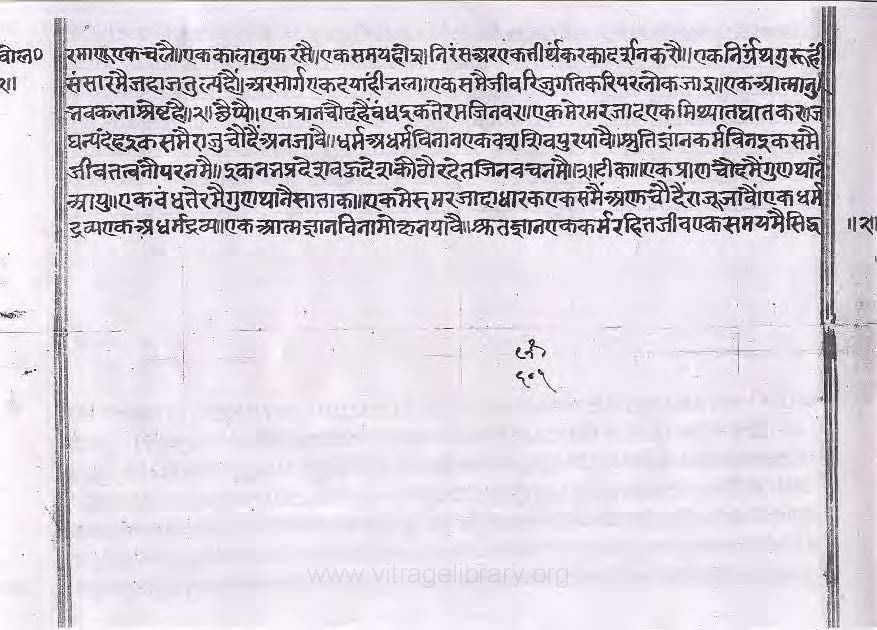 रमाणुएकचलै॥एककालानुफरसै॥एकसमयहोइ॥तिसंसअरएकतीर्थंकरकादर्शनकरौ॥एकनिर्ग्रंथगुरूही
संसारमैजहाजतुल्यहै॥अरमार्गएकदयाहीभला॥एकसमैजीवरिजुगतिकरिपरलोकजाइ॥एकआत्मानु
भवकलाश्रेष्टहै॥२॥छप्पै॥एकप्रानचौदहैंबंधइकतेरमजिनवर॥एकमेरमरजादएकमिथ्यातघातकर॥ज
घन्यंदेहइकसमैराजुचौदैंअनजावै॥धर्मअधर्मवितानएकवशशिवपुरपावै॥श्रुतिज्ञानकर्मविनइकसमै
जीवतत्वनौपरनमै॥इकनभप्रदेशवऊदेशकौठौरदेतजिनवचनमै॥३॥टीका॥एकप्राणचौदमैंगुणथानै
आयु॥एकबंधतेरमैगुणथानैसाताका॥एकमेरूमरजादाधारकएकसमैंअणचौदैंराजूजावै॥एकधर्म
द्रव्यएकअधर्मद्रव्य॥एकआत्मज्ञानविनामोक्षनपावै॥श्रुतज्ञानएककर्मरहितजीवएकसमयमैसिद्ध
॥२॥
www.vitragelibrary.org